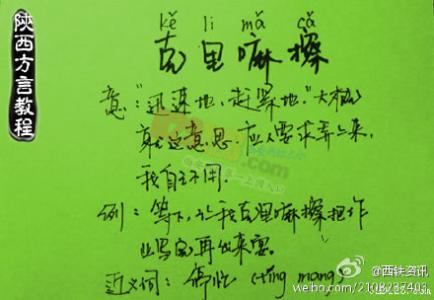 陕西方言教程
kě li mǎ cā
克里嘛擦
意："迅速地，赶紧地。"大概
就这意思。应人要求弄上来，
我自己不用。
例：等下，让我克里嘛擦把作
业写完再出来耍。
近义词：
@西铁资讯
weibo.com/2108237403